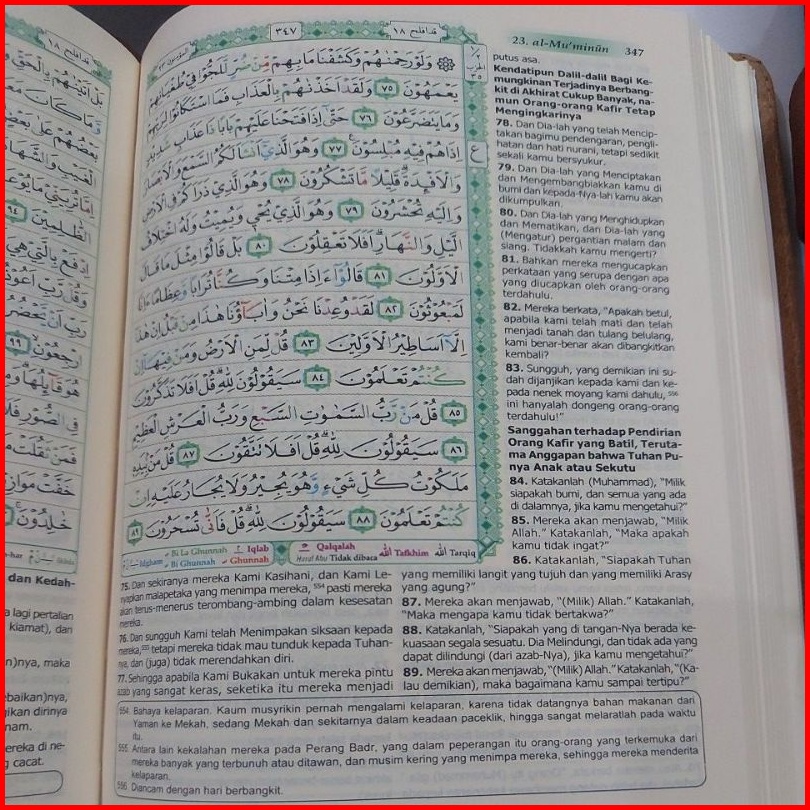 قدافلح ١٨
٣٤٧
المؤمنون ٢٣
۞ وَلَوْرَحِمْنٰهُمْ وَكَشَفْنَا مَا بِهِمْ مِّنْ ضُرٍّ لَّلَجُّوْا فِيْ طُغْيَانِهِمْ
يَعْمَهُوْنَ ٧٥ وَلَقَدْ اَخَذْنٰهُمْ بِالْعَذَابِ فَمَا اسْتَكَانُوْا لِرَبِّهِمْ
وَمَا يَتَضَرَّعُوْنَ ٧٦ حَتّٰىٓ اِذَا فَتَحْنَا عَلَيْهِمْ بَابًا ذَا عَذَابٍ شَدِيْدٍ
اِذَاهُمْ فِيْهِ مُبْلِسُوْنَ ٧٧ وَهُوَ الَّذِيْٓ اَنْشَاَ لَكُمُ السَّمْعَ وَالْاَبْصَارَ
وَالْاَفْـِٕدَةَۗ قَلِيْلًا مَّا تَشْكُرُوْنَ ٧٨ وَهُوَ الَّذِيْ ذَرَاَكُمْ فِى الْاَرْضِ
وَاِلَيْهِ تُحْشَرُوْنَ ٧٩ وَهُوَ الَّذِيْ يُحْيٖ وَيُمِيْتُ وَلَهُ اخْتِلَافُ
الَّيْلِ وَالنَّهَارِۗ اَفَلَا تَعْقِلُوْنَ ٨٠ بَلْ قَالُوْا مِثْلَ مَا قَالَ
الْاَوَّلُوْنَ ٨١ قَالُوْٓا ءَاِذَا مِتْنَا وَكُنَّا تُرَابًا وَّعِظَامًا ءَاِنَّا
لَمَبْعُوْثُوْنَ ٨٢ لَقَدْ وُعِدْنَا نَحْنُ وَاٰبَاۤؤُنَا هٰذَا مِنْ قَبْلُ اِنْ هٰذَآ
اِلَّآ اَسَاطِيْرُ الْاَوَّلِيْنَ ٨٣ قُلْ لِّمَنِ الْاَرْضُ وَمَنْ فِيْهَآ اِنْ
كُنْتُمْ تَعْلَمُوْنَ ٨٤ سَيَقُوْلُوْنَ لِلّٰهِۗ قُلْ اَفَلَا تَذَكَّرُوْنَ
٨٥ قُلْ مَنْ رَّبُّ السَّمٰوٰتِ السَّبْعِ وَرَبُّ الْعَرْشِ الْعَظِيْمِ
٨٦ سَيَقُوْلُوْنَ لِلّٰهِۗ قُلْ اَفَلَا تَتَّقُوْنَ ٨٧ قُلْ مَنْۢ بِيَدِهٖ
مَلَكُوْتُ كُلِّ شَيْءٍ وَّهُوَ يُجِيْرُ وَلَا يُجَارُ عَلَيْهِ اِنْ
كُنْتُمْ تَعْلَمُوْنَ ٨٨ سَيَقُوْلُوْنَ لِلّٰهِۗ قُلْ فَاَنّٰى تُسْحَرُوْنَ ٨٩
Idgham
Bi La Ghunnah
Bi Ghunnah
Iqlab
Ghunnah
Qalqalah
Huruf Abu Tidak dibaca
الله Tafkhim الله Tarqiq
75. Dan sekiranya mereka Kami Kasihani, dan Kami Le-
nyapkan malapetaka yang menimpa mereka, 554 pasti mereka
akan terus-menerus terombang-ambing dalam kesesatan
mereka.
76. Dan sungguh Kami telah Menimpakan siksaan kepada
mereka,555 tetapi mereka tidak mau tunduk kepada Tuhan-
nya, dan (juga) tidak merendahkan diri.
77. Sehingga apabila Kami Bukakan untuk mereka pintu
azab yang sangat keras, seketika itu mereka menjadi
23. al-Mu'minûn 347
putus asa.
Kendatipun Dalil-dalil Bagi Ke-
mungkinan Terjadinya Berbang-
kit di Akhirat Cukup Banyak, na-
mun Orang-orang Kafir Tetap
Mengingkarinya
78. Dan Dia-lah yang telah Mencip-
takan bagimu pendengaran, pengli-
hatan dan hati nurani, tetapi sedikit
sekali kamu bersyukur.
79. Dan Dia-lah yang Menciptakan
dan Mengembangbiakkan kamu di
bumi dan kepada-Nya-lah kamu akan
dikumpulkan.
80. Dan Dia-lah yang Menghidupkan
dan Mematikan, dan Dia-lah yang
(Mengatur) pergantian malam dan
siang. Tidakkah kamu mengerti?
81. Bahkan mereka mengucapkan
perkataan yang serupa dengan apa
yang diucapkan oleh orang-orang
terdahulu.
82. Mereka berkata, "Apakah betul,
apabila kami telah mati dan telah
menjadi tanah dan tulang belulang,
kami benar-benar akan dibangkitkan
kembali?
83. Sungguh, yang demikian ini su-
dah dijanjikan kepada kami dan ke-
pada nenek moyang kami dahulu, 556
ini hanyalah dongeng orang-orang
terdahulu!"
Sanggahan terhadap Pendirian
Orang Kafir yang Batil, Teruta-
ma Anggapan bahwa Tuhan Pu-
nya Anak atau Sekutu
84. Katakanlah (Muhammad), "Milik
siapakah bumi, dan semua yang ada
di dalamnya, jika kamu mengetahui?"
85. Mereka akan menjawab, "Milik
Allah." Katakanlah, "Maka apakah
kamu tidak ingat?"
86. Katakanlah, "Siapakah Tuhan
yang memiliki langit yang tujuh dan yang memiliki Arasy
yang agung?"
87. Mereka akan menjawab, "(Milik) Allah." Katakanlah,
"Maka mengapa kamu tidak bertakwa?"
88. Katakanlah, "Siapakah yang di tangan-Nya berada ke-
kuasaan segala sesuatu. Dia Melindungi, dan tidak ada yang
dapat dilindungi (dari azab-Nya), jika kamu mengetahui?"
89. Mereka akan menjawab, "(Milik) Allah." Katakanlah, "(Ka-
lau demikian), maka bagaimana kamu sampai tertipu?"
554. Bahaya kelaparan. Kaum musyrikin pernah mengalami kelaparan, karena tidak datangnya bahan makanan dari
Yaman ke Mekah, sedang Mekah dan sekitarnya dalam keadaan paceklik, hingga sangat melaratlah pada waktu
itu.
555. Antara lain kekalahan mereka pada Perang Badr, yang dalam peperangan itu orang-orang yang terkemuka dari
mereka banyak yang terbunuh atau ditawan, dan musim kering yang menimpa mereka, sehingga mereka menderita
kelaparan.
556. Diancam dengan hari berbangkit.